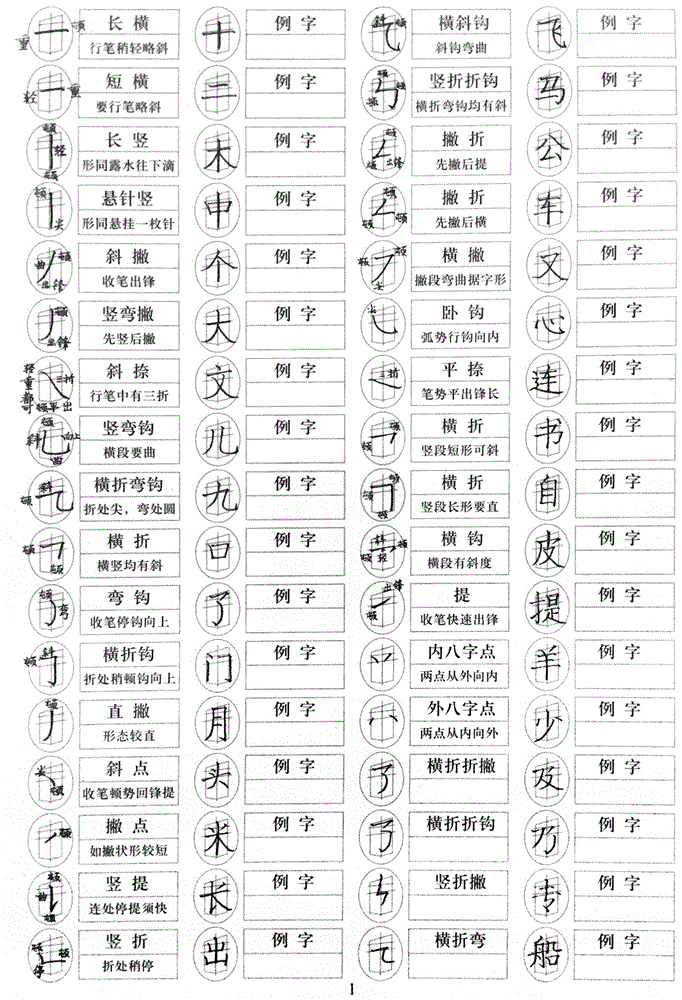 重 顿 长横 十 例字 斜 横斜钩 飞 例字
行笔稍轻略斜 斜钩弯曲
轻 重 短横 二 例字 顿 顿 顿 竖折折钩 马 例字
要行笔略斜 横折弯钩均有斜
顿 轻 顿 长竖 木 例字 顿 出锋 撇折 公 例字
形同露水往下滴 先撇后提
顿 尖 悬针竖 申 例字 顿 顿 顿 撇折 车 例字
形同悬挂一枚针 先撇后横
顿 曲 出锋 斜撇 个 例字 顿 顿 尖 横撇 又 例字
收笔出锋 撇段弯曲据字形
顿 出锋 竖弯撇 大 例字 尖 卧钩 心 例字
先竖后撇 弧势行钩向内
轻重都可 三折 顿平出 斜捺 文 例字 三折 平捺 连 例字
行笔中有三折 笔势平出锋长
顿 斜 向上 曲 竖弯钩 儿 例字 顿 横折 书 例字
横段要曲 竖段短形可斜
斜 顿 横折弯钩 九 例字 顿 顿 顿 横折 自 例字
折处尖，弯处圆 竖段长形要直
顿 顿 横折 口 例字 斜 顿 轻 顿 横钩 皮 例字
横竖均有斜 横段有斜度
顿 弯 弯钩 了 例字 出锋 顿 提 提 例字
收笔停钩向上 收笔快速出锋
斜 顿 横折钩 门 例字 内八字点 羊 例字
折处稍顿钩向上 两点从外向内
顿 直撇 月 例字 外八字点 少 例字
形态较直 两点从内向外
尖 顿 斜点 头 例字 横折折撇 及 例字
收笔顿势回锋提
顿 撇点 米 例字 横折折钩 乃 例字
如撇状形较短
顿 曲 顿 竖提 长 例字 竖折撇 专 例字
连处停提须快
顿 顿 停 竖折 出 例字 横折弯 船 例字
折处稍停
1